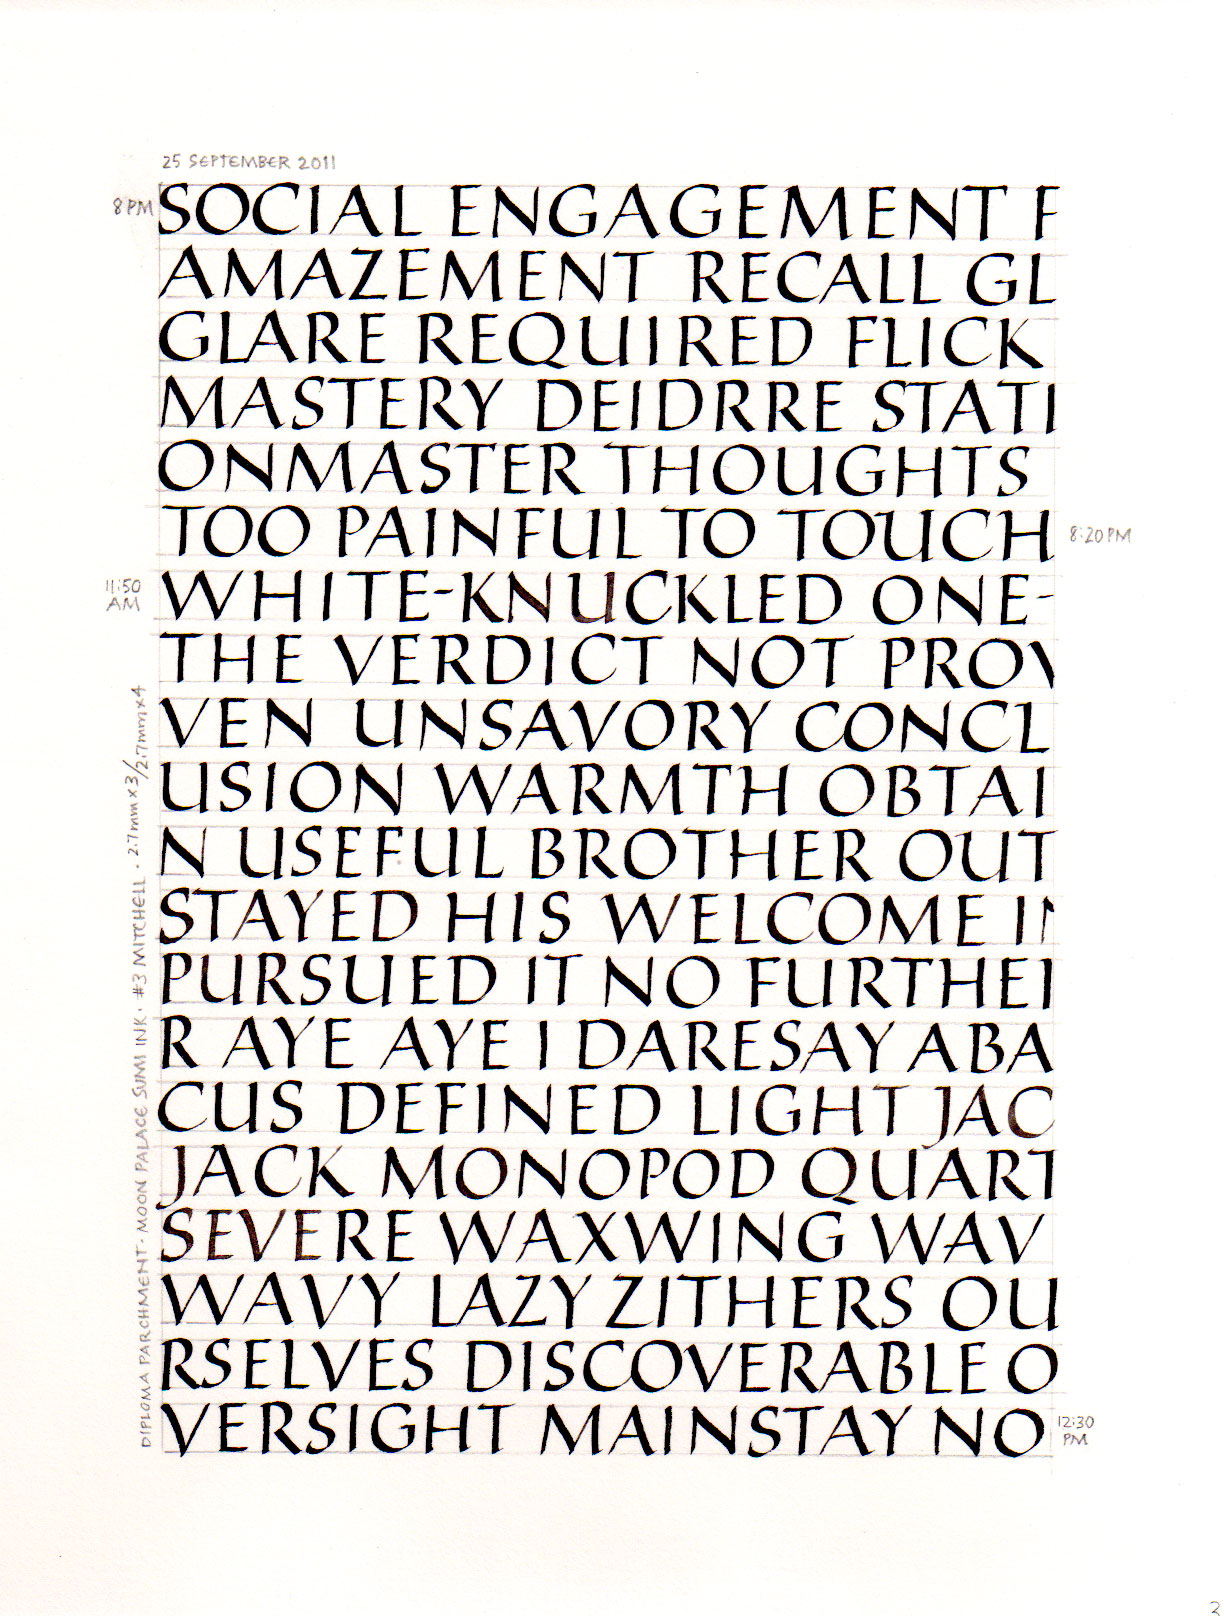 25 SEPTEMBER 2011
8 PM
SOCIAL ENGAGEMENT F
AMAZEMENT RECALL GL
GLARE REQUIRED FLICK
MASTERY DEIDRRE STATI
ONMASTER THOUGHTS
TOO PAINFUL TO TOUCH
8:20 PM
11:50
AM
WHITE-KNUCKLED ONE-
THE VERDICT NOT PROV
VEN UNSAVORY CONCL
USION WARMTH OBTAI
N USEFUL BROTHER OUT
STAYED HIS WELCOME IN
PURSUED IT NO FURTHER
R AYE AYE I DARESAY ABA
CUS DEFINED LIGHT JAC
JACK MONOPOD QUART
SEVERE WAXWING WAV
WAVY LAZY ZITHERS OU
RSELVES DISCOVERABLE O
VERSIGHT MAINSTAY NO
12:30
PM
DIPLOMA PARCHMENT · MOON PALACE SUMI INK · #3 MITCHELL · 2.7mm x 3/2.7mm x 4
2